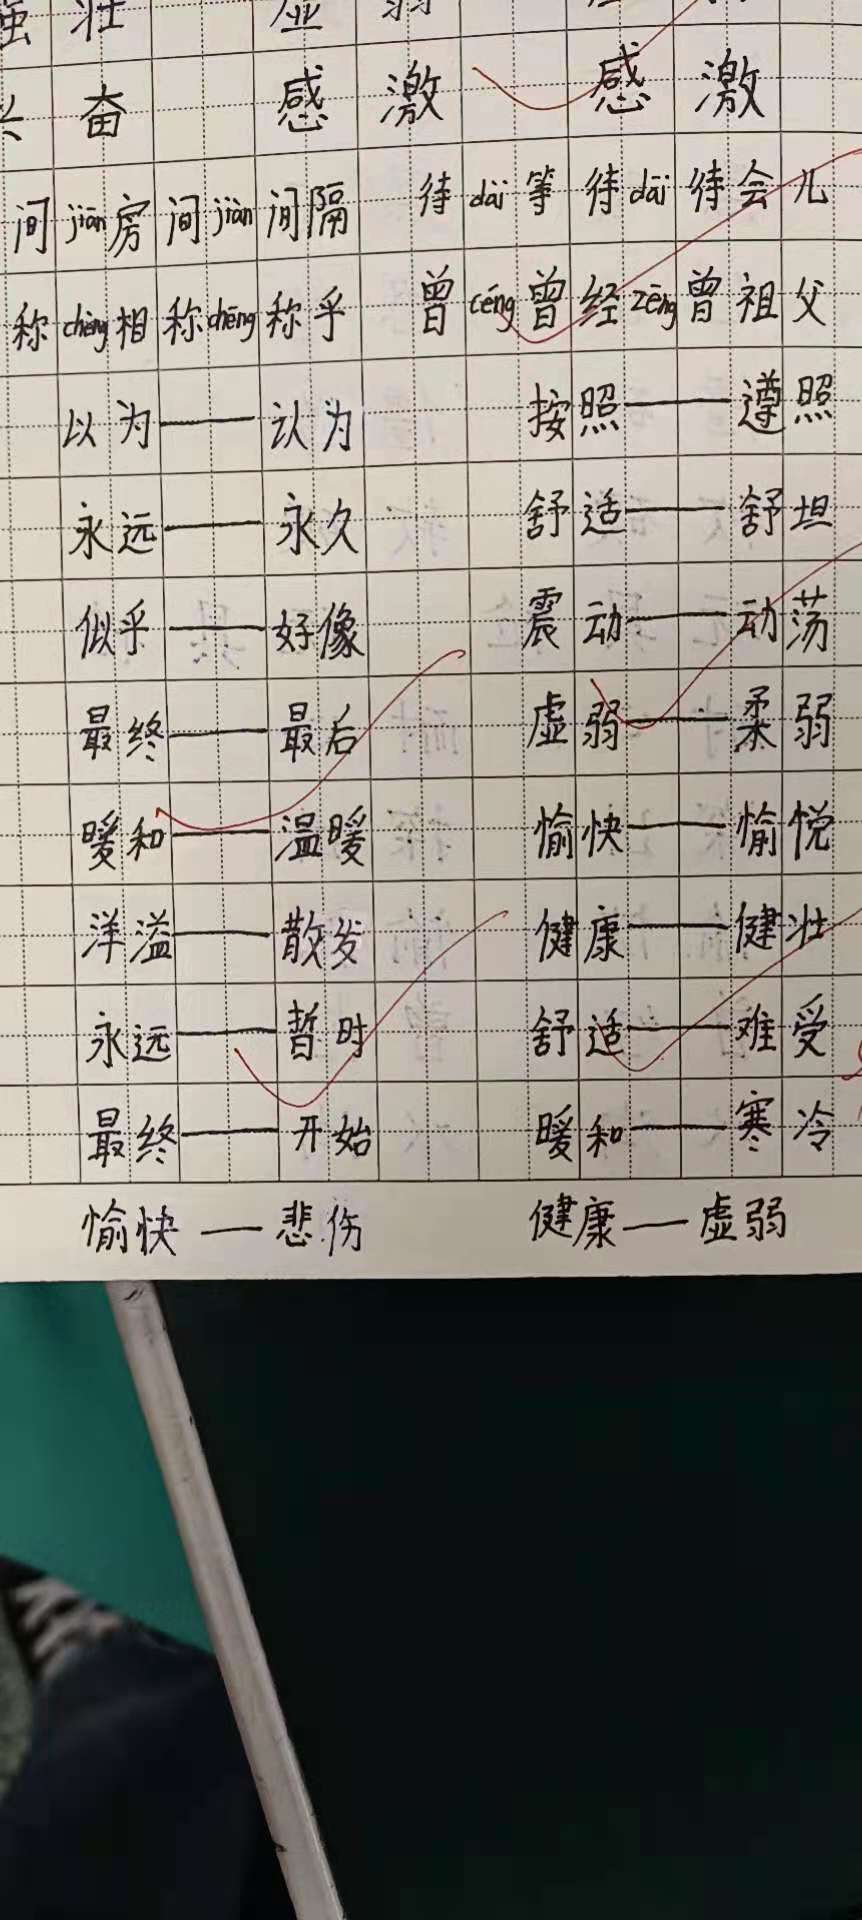 强壮 虚弱
兴奋 感激 感激
间 jiān 房间 jiàn 间隔 待 dài 等待 dāi 待会儿
称 chèng 相称 chēng 称乎 曾 céng 曾经 zēng 曾祖父
以为——认为 按照——遵照
永远——永久 舒适——舒坦
似乎——好像 震动——动荡
最终——最后 虚弱——柔弱
暖和——温暖 愉快——愉悦
洋溢——散发 健康——健壮
永远——暂时 舒适——难受
最终——开始 暖和——寒冷
愉快——悲伤 健康——虚弱